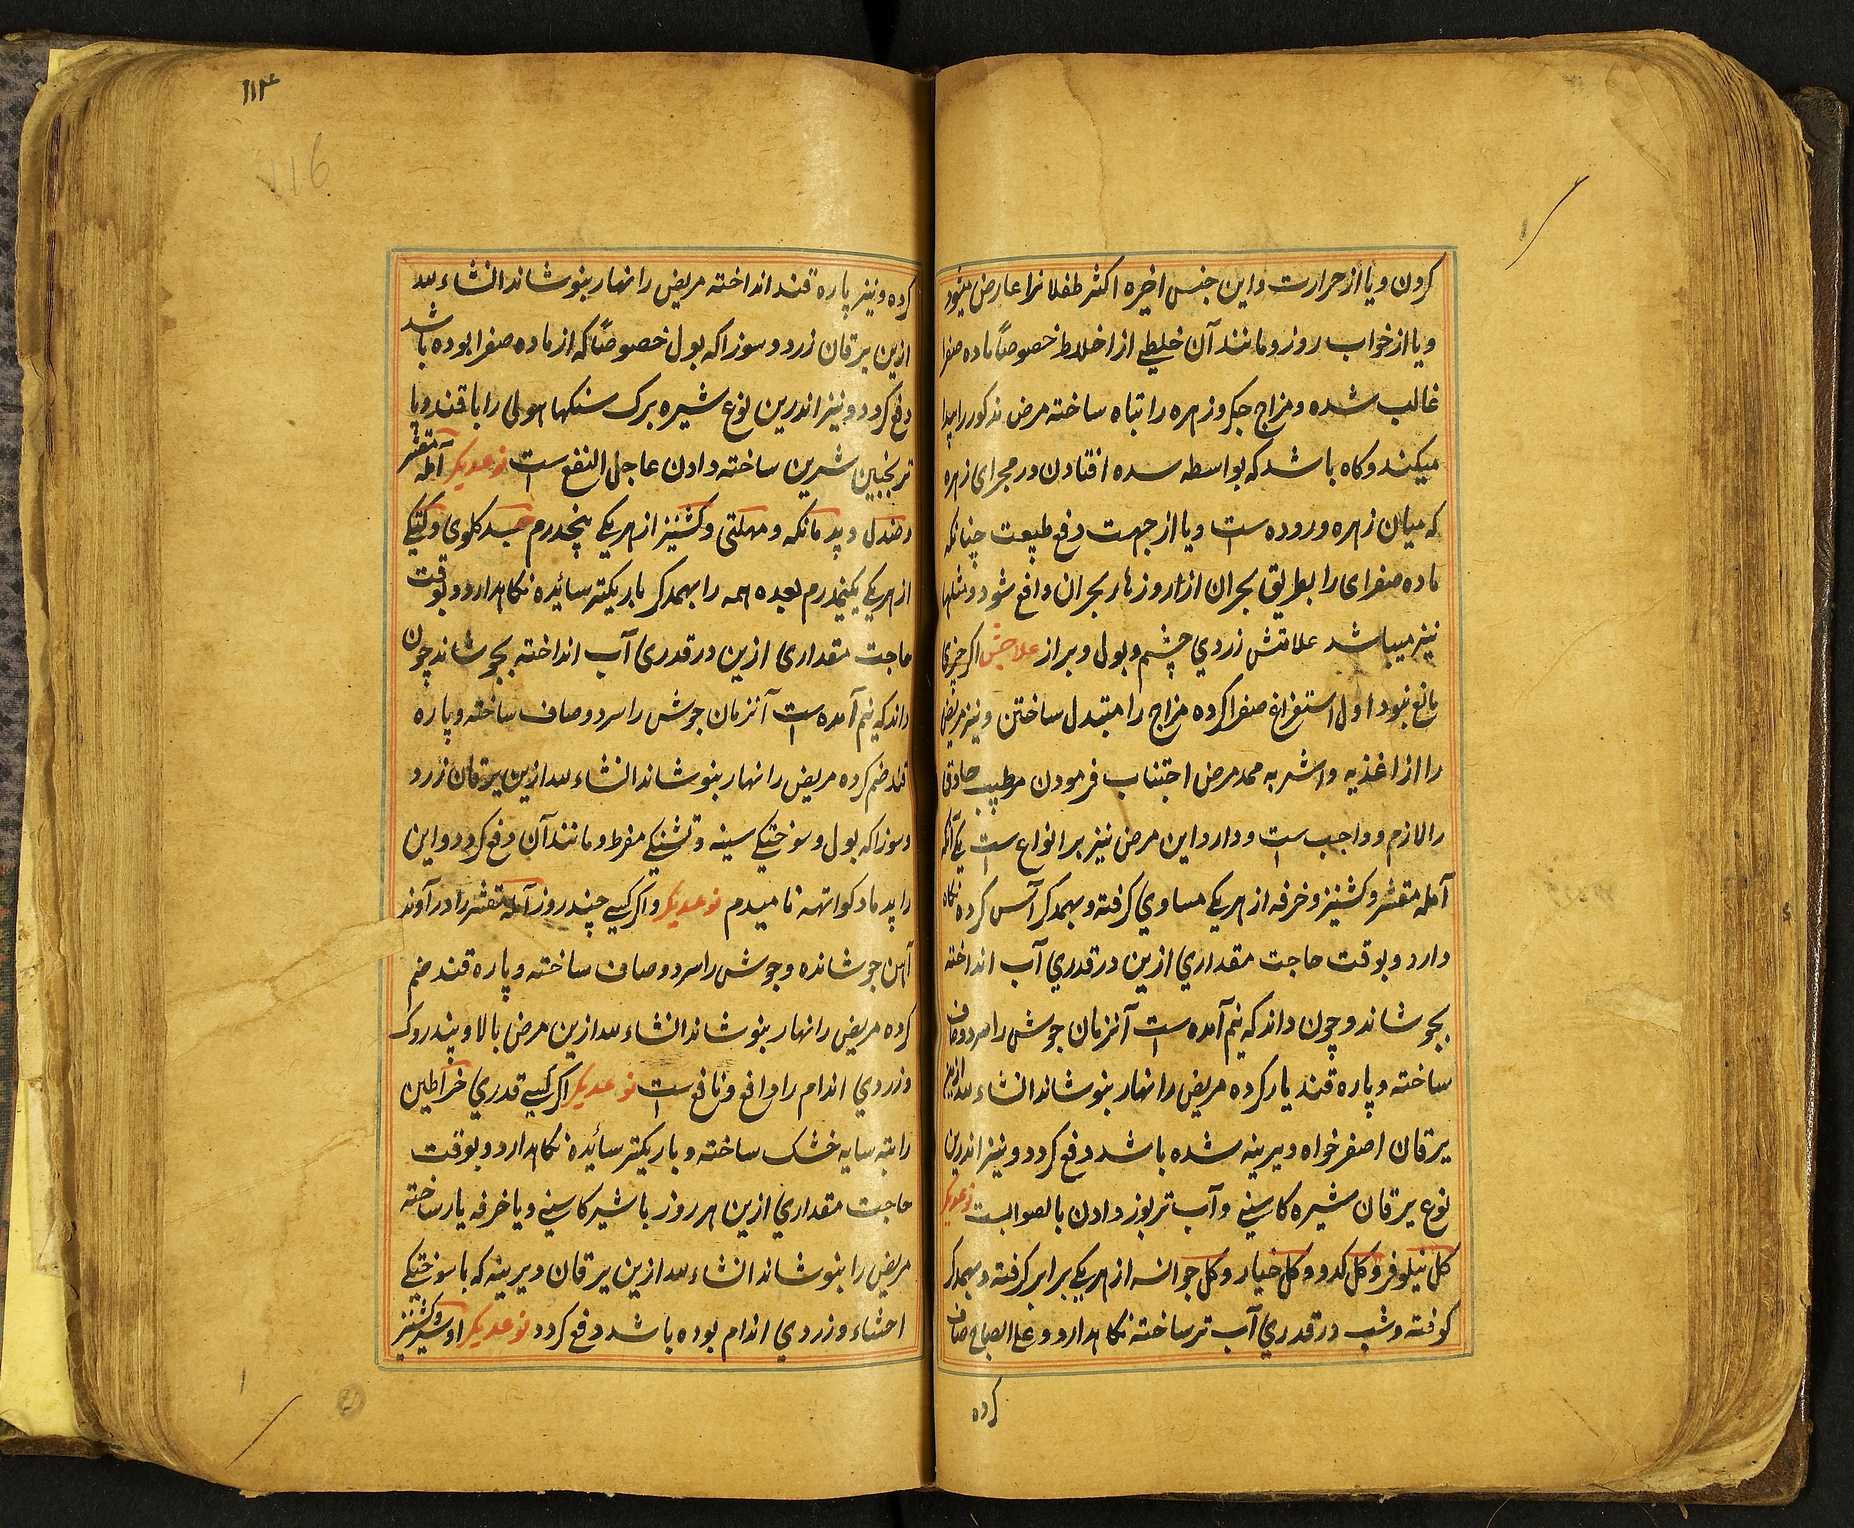 کردن و یا از حرارت و این جنس اخیره اکثر طفلانرا عارض میشود
و یا از خواب روز و مانند آن خلیطے از اخلاط خصوصاً ماده صفرا
غالب شده و مزاج جکر و زهره را تباه ساخته مرض مذکور را پیدا
میکند و کاه باشد که بواسطه سده افتادن در مجرای زهره
که میان زهره و روده است و یا از جهت دفع طبیعت چنانکه
ماده صفرای را بطریق بحران از روزهار بحران دافع شود و مثلها
نیز میباشد علامتش زردي چشم و بول و براز علاجش اکر چیزی
مانع نبود اول استفراغ صفرا کرده مزاج را متبدل ساختن و نیز مریض
را از اغذیه و اشربه ممد مرض اجتناب فرمودن مر طبیب حاذق
را لازم و واجب است و دارد این مرض نیز بر انواع است یکے آنکه
آمله مقشر و کشنیز و خرفه از هر یکے مساوي کرفته و بهمدکر آس کرده نکاه
دارد و بوقت حاجت مقداري ازین در قدري آب انداخته
بجوشاند و چون داند که نیم آمده است آنزمان جوش را سرد و صاف
ساخته و پاره قند یار کرده مریض را نهار بنوشاند انشاءلله ازین
یرقان اصفر خواه دیرینه شده باشد دفع کردد و نیز اندرین
نوع یرقان شیره کاسنے و آب تربوز دادن بالصوابست نوعدیکر
کل نیلوفر و کل کدو و کل خیار و کل جوانسه از هر یکے برابر کرفته و بهمدکر
کوفته و شب در قدري آب تر ساخته نکاهدارد و علے الصباح صاف
کرده
۱۱۴
116
کرده و نیز پاره قند انداخته مریض را نهار بنوشاند انشاءلله
ازین یرقان زرد و سوزاکه بول خصوصاً که از ماده صفرا بوده باشد
دفع کردد و نیز اندرین نوع شیره برک سنکهاهولی را با قند و یا
ترنجبین شیرین ساخته دادن عاجل النفع است نوعدیکر آمله مقشر
و صندل و پدمانکه و مهلتی و کشنیز از هر یکے پنجدرم کلوی و کتیکے
از هر یکے یکنیمدرم بعده همه را بهمدکر باریکتر سائیده نکاهدارد و بوقت
حاجت مقداری ازین در قدری آب انداخته بجوشاند چون
داند که نیم آمده است آنزمان جوش را سرد و صاف ساخته و پاره
قند ضم کرده مریض را نهار بنوشاند انشاءلله ازین یرقان زرد
و سوزاکه بول و سوختیکے سینه و تشنیکے مفرط و مانند آن دفع کردد و این
را پدمادکواتهه نامیدم نوعدیکر و اکر کسے چند روز آمله مقشر را در آوند
آهن جوشانده و جوش را سرد و صاف ساخته و پاره قند ضم
کرده مریض را نهار بنوشاند انشاءلله ازین مرض بالا و پندروک
و زردي اندام را دافع و نافع است نوعدیکر اکر کسے قدري خراطین
را بته سایه خشک ساخته و باریکتر سائیده نکاهدارد و بوقت
حاجت مقداري ازین هر روز با شیر کاسنے و یا خرفه یار ساخته
مریض را بنوشاند انشاءلله ازین یرقان دیرینه که با سوختیکے
احشاء و زردي اندام بوده باشد دفع کردد نوعدیکر و کشنیز